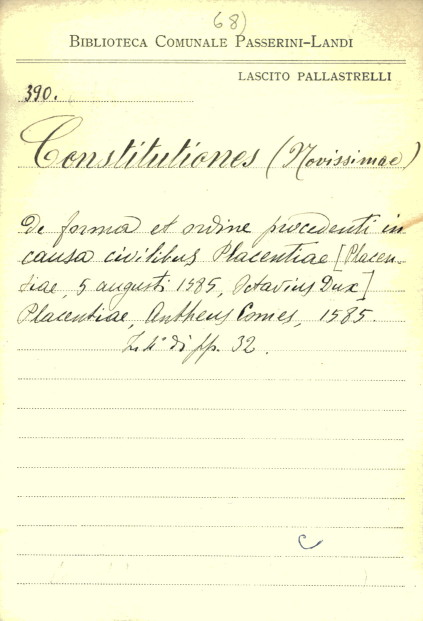 68)
BIBLIOTECA COMUNALE PASSERINI-LANDI
LASCITO PALLASTRELLI
390.
Constitutiones (Novissimae)
De forma et ordine procedenti in
causa civilibus Placentiae [Placen-
tiae, 5 augusti 1585, Octavius Dux]
Placentiae, Antheus Comes, 1585.
4° di pp. 32.